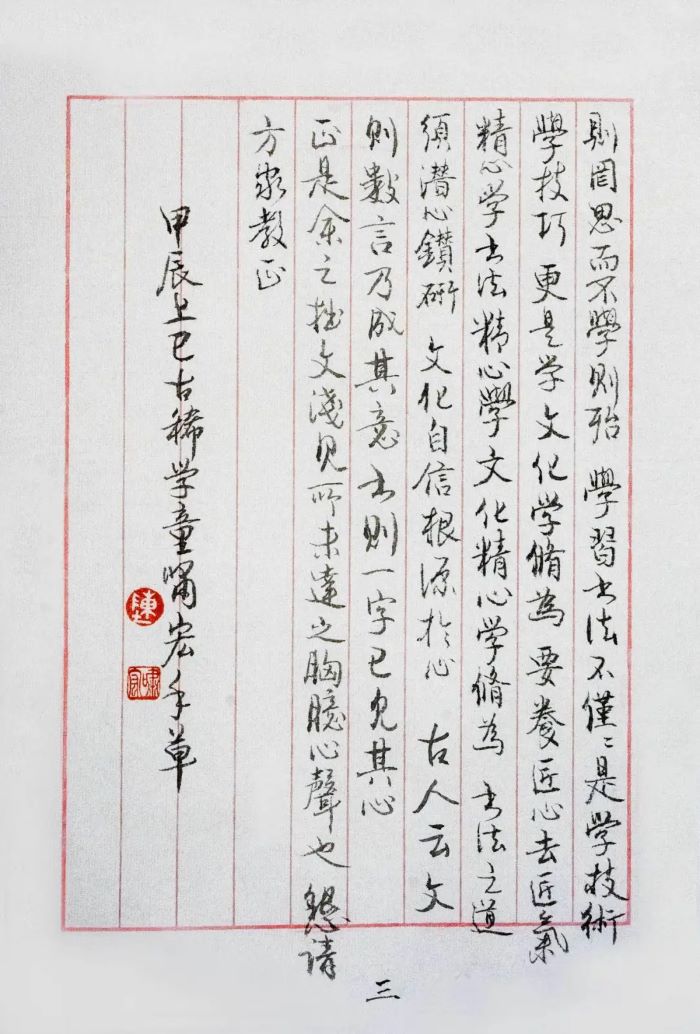 則罔思而不學則殆 學習书法不僅〻是学技術
學技巧 更是学文化学脩為 要養匠心去匠氣
精心学书法精心學文化精心学脩為 书法之道
須潜心鑽研 文化自信根源於心 古人云文
则數言乃成其意书则一字已見其心
正是余之拙文淺見所未達之胸臆心聲也 懇請
方家教正
甲辰上巳古稀学童啸宏手草
陳
三